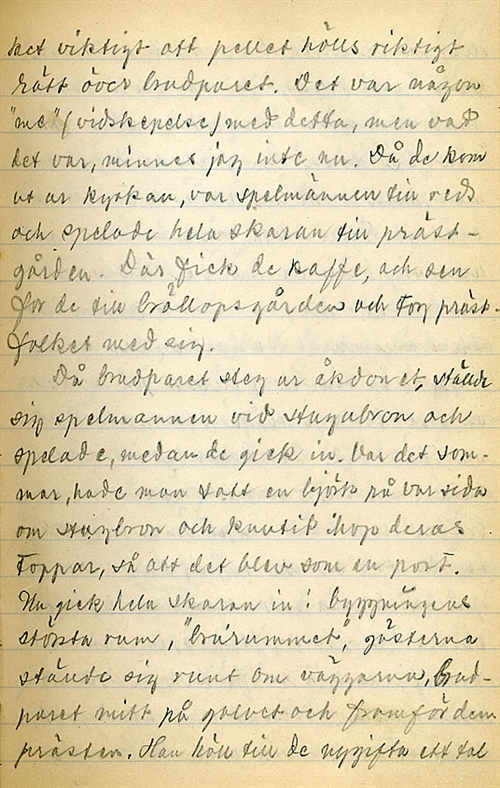 det viktigt att pellet hölls riktigt
rätt över brudparet. Det var någon
"me" (vidskepelse) med detta, men vad
det var, minnes jag inte nu. Då de kom
ut ur kyrkan, var spelmännen till reds
och spelade hela skaran till präst-
gården. Där fick de kaffe, och sen
for de till bröllopsgården och tog präst-
folket med sig.
Då brudparet steg ur åkdonet, ställde
sig spelmännen vid stugubron och
spelade, medan de gick in. Var det som-
mar, hade man satt en björk på var sida
om stugbron och knutit ihop deras
toppar, så att det blev som en port.
Nu gick hela skaran in i byggningens
största rum, "brurummet", gästerna
ställde sig runt om väggarna, brud-
paret mitt på golvet och framför dem
prästen. Han höll till de nygifta ett tal